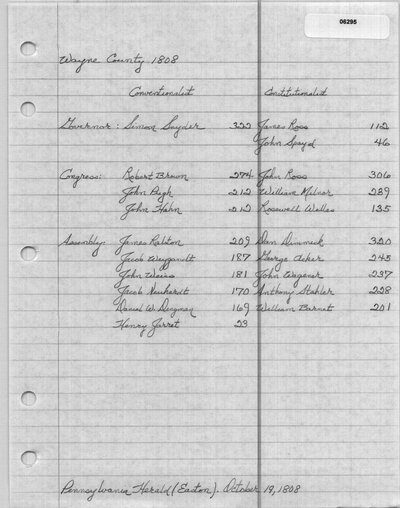 06295
Wayne County 1808
Conventionalist Constitutionalist
Governor: Simon Snyder 322 James Ross 112
John Spayd 46
Congress: Robert Brown 274 John Ross 306
John Pugh 212 William Milnor 289
John Hahn 212 Rosewell Welles 135
Assembly: James Ralston 209 Dan Dimmick 320
Jacob Weygandt 187 George Acker 245
John Weiss 181 John Wagener 237
Jacob Newhardt 170 Anthony Stahler 228
Daniel W. Dingman 169 William Barnet 201
Henry Jarret 23
Pennsylvania Herald (Easton). October 19, 1808